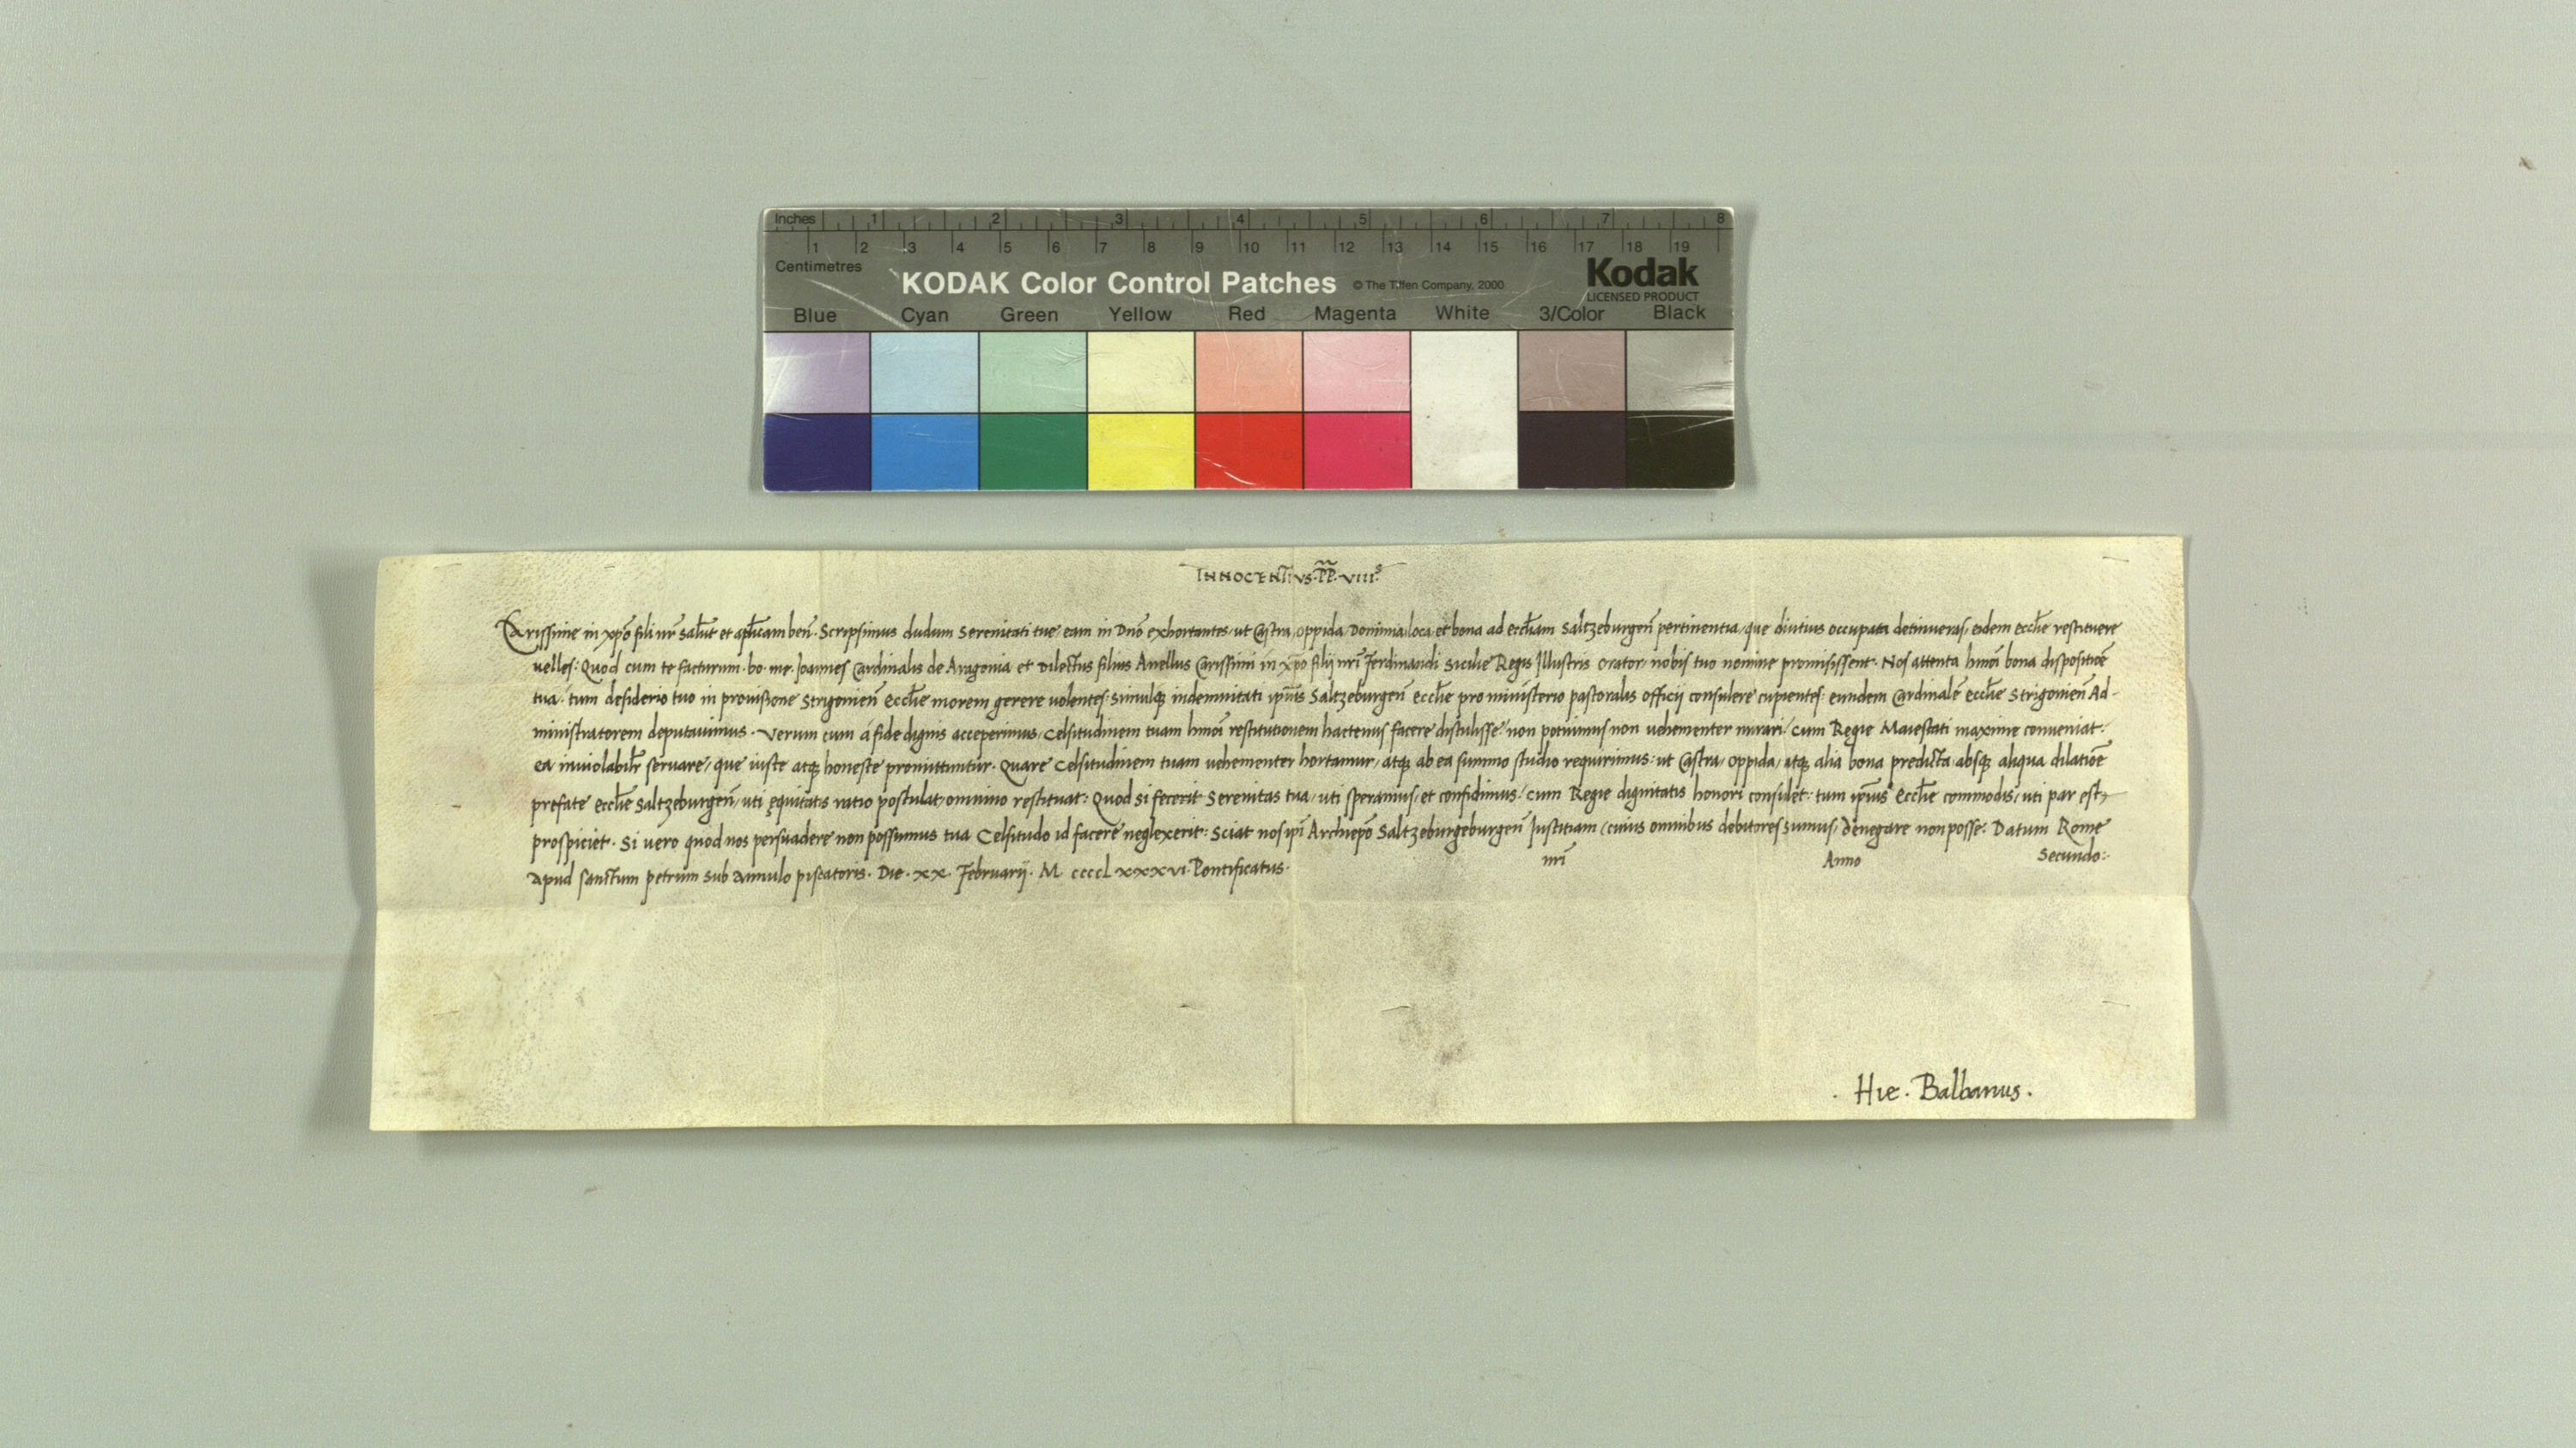 Inches 1 2 3 4 5 6 7 8
1 2 3 4 5 6 7 8 9 10 11 12 13 14 15 16 17 18 19
Centimetres
KODAK Color Control Patches © The Tiffen Company, 2000 Kodak
LICENSED PRODUCT
Blue Cyan Green Yellow Red Magenta White 3/Color Black
INNOCENTIVS· PP· VIIIs
Carissime in xpo fili nr salut et aplicam ben. Scripsimus dudum Serenitati tue, eam in Dno exhortantes, ut Castra, oppida, Dominia, loca, et bona ad eccliam Saltzeburgen pertinentia, que diutius occupata detinueras, eidem ecclie restituere
uelles: Quod cum te facturum· bo· me· Joannes Cardinalis de Aragonia et Dilectus filius Anellus Carissimi in xpo filij nri Ferdinandi Sicilie Regis Illustris orator, nobis tuo nomine promisissent· Nos attenta hmoi bona dispositioe
tua: tum desiderio tuo in prouisione Strigonien Ecclie morem gerere uolentes: simulq indemnitati ipius Saltzeburgen Ecclie pro ministerio pastoralis officij consulere cupientes: eundem Cardinale Ecclie Strigonien Ad-
ministratorem deputauimus· Verum cum á fide dignis acceperimus, Celsitudinem tuam hmoi restitutionem hactenus facere distulisse: non potuimus non uehementer mirari, cum Regie Maiestati maxime conueniat:
ea inuiolabilr seruare, que iuste atq honeste promittuntur· Quare Celsitudinem tuam uehementer hortamur, atq ab ea summo studio requirimus: ut Castra, oppida, atq alia bona predicta absq aliqua dilatioe
prefate Ecclie Saltzeburgen, uti ęquitatis ratio postulat, omnino restituat: Quod si fecerit Serenitas tua, uti speramus, et confidimus: cum Regie dignitatis honori considet: tum ipius Ecclie commodis, uti par est,
prospiciet· Si uero quod nos persuadere non possumus tua Celsitudo id facere neglexerit: Sciat nos ipi Archiepo Saltzeburgeburgen Justitiam (cuius omnibus debitores sumus) denegare non posse: Datum Rome
apud sanctum petrum sub annulo piscatoris· Die· xx· Februarij· M ccccLxxxvi· Pontificatus· nri Anno Secundo:·
· Hie· Balbanus·